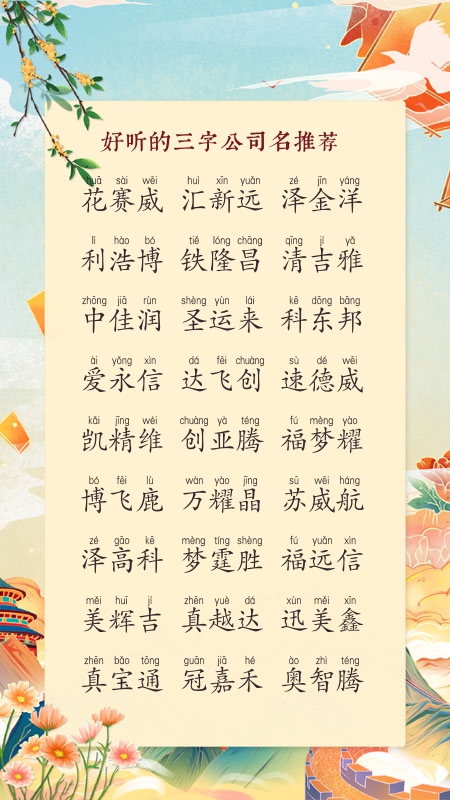 好听的三字公司名推荐
huā sài wēi huì xīn yuǎn zé jīn yáng
花赛威 汇新远 泽金洋
lì hào bó tiě lóng chāng qīng jí yǎ
利浩博 铁隆昌 清吉雅
zhōng jiā rùn shèng yùn lái kē dōng bāng
中佳润 圣运来 科东邦
ài yǒng xìn dá fēi chuàng sù dé wēi
爱永信 达飞创 速德威
kǎi jīng wéi chuàng yà téng fú mèng yào
凯精维 创亚腾 福梦耀
bó fēi lù wàn yào jīng sū wēi háng
博飞鹿 万耀晶 苏威航
zé gāo kē mèng tíng shèng fú yuǎn xìn
泽高科 梦霆胜 福远信
měi huī jí zhēn yuè dá xùn měi xīn
美辉吉 真越达 迅美鑫
zhēn bǎo tōng guān jiā hé ào zhì téng
真宝通 冠嘉禾 奥智腾